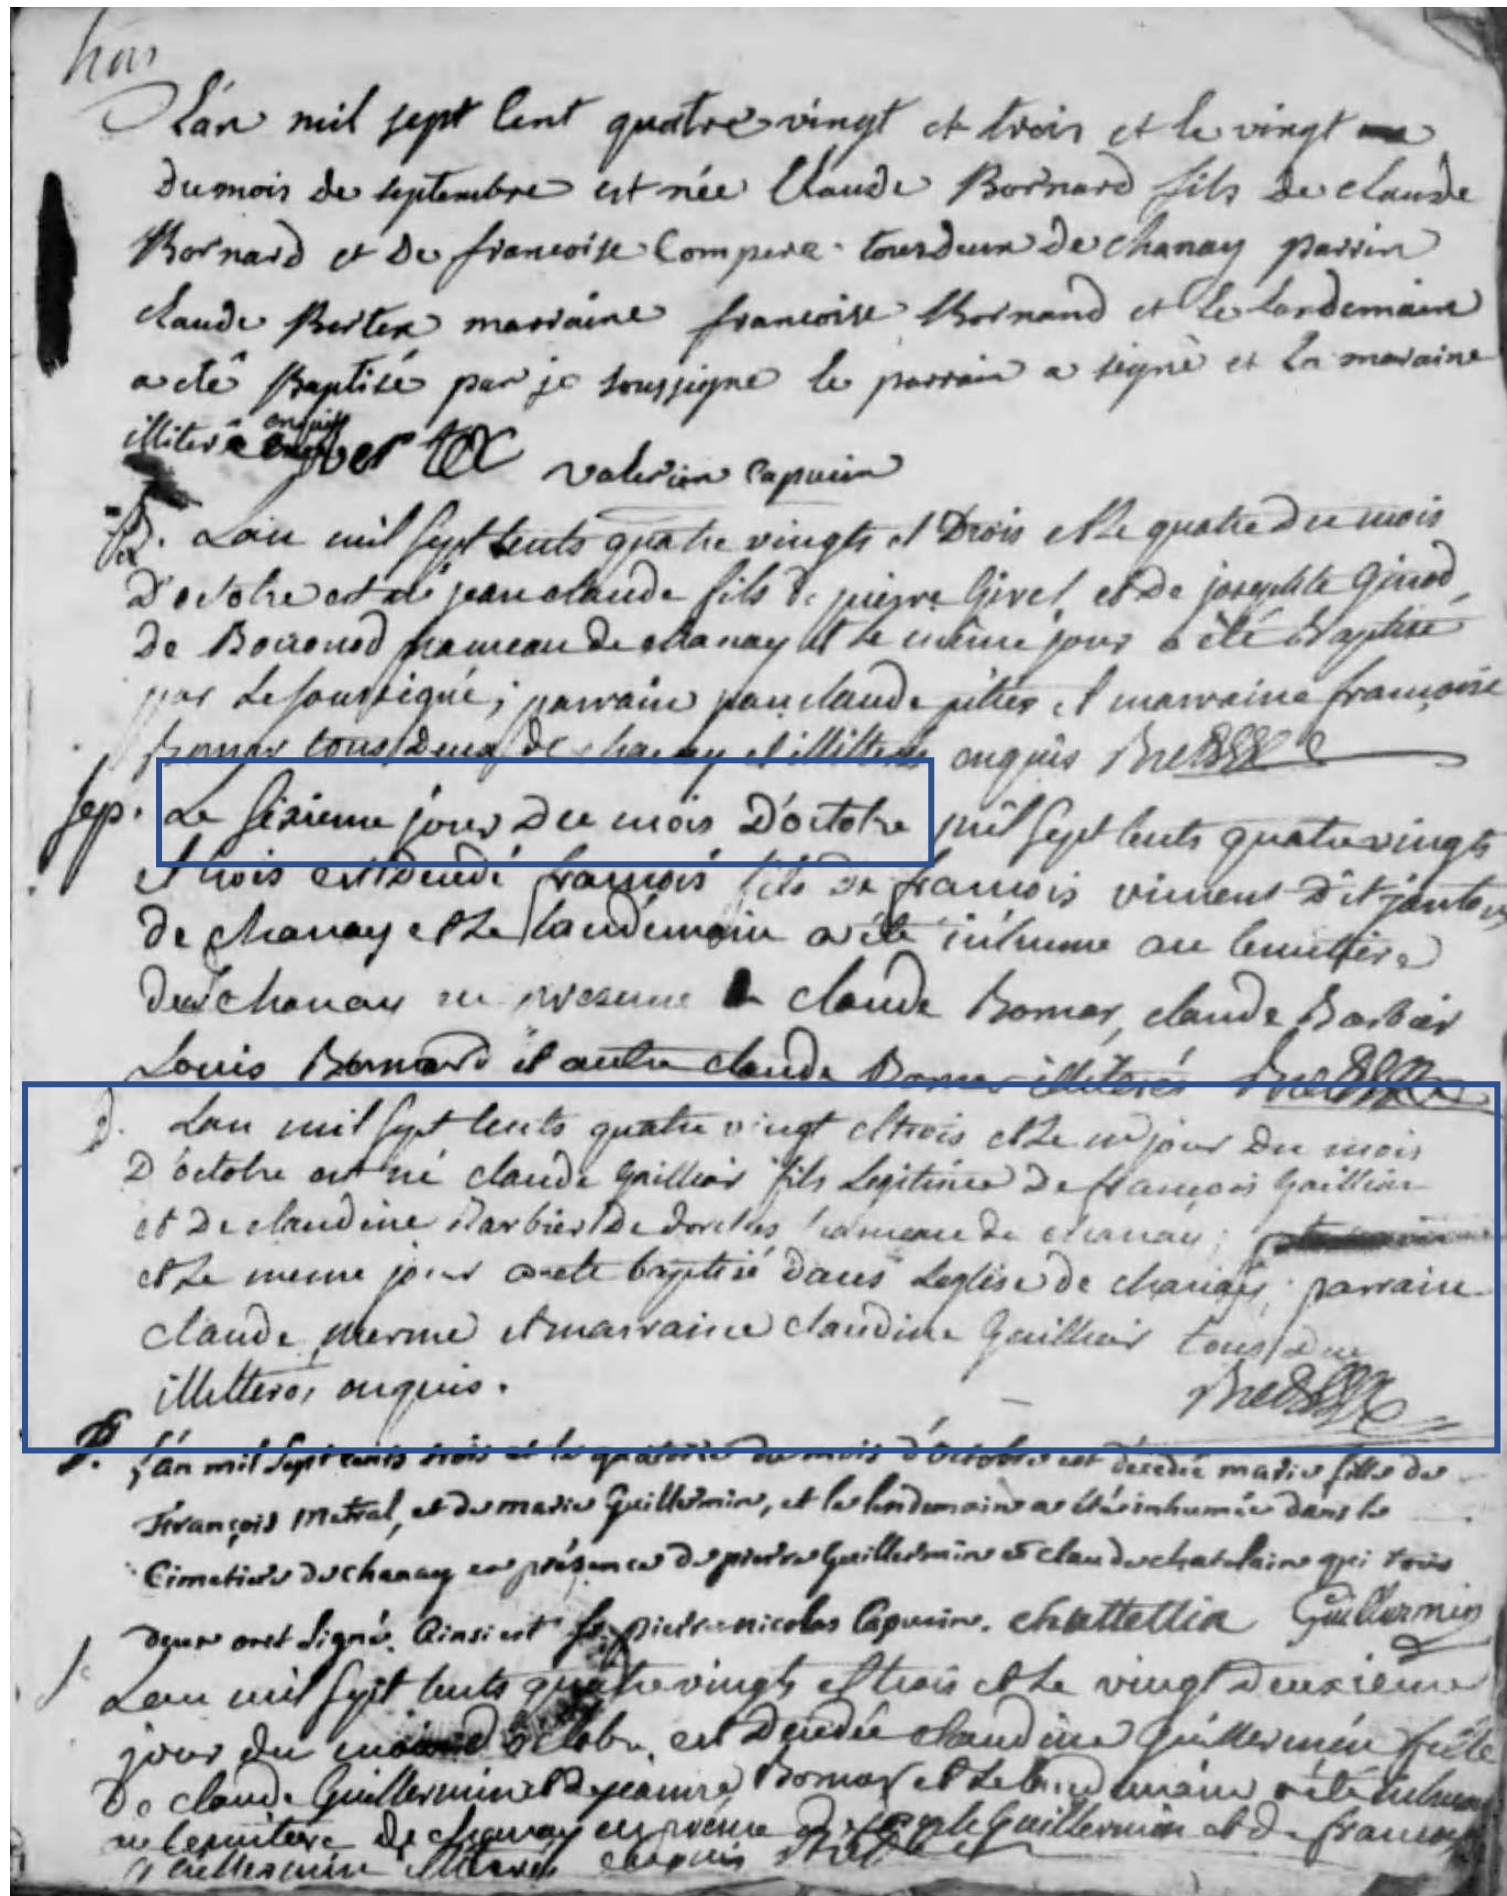 L'an mil sept Cent quatre vingt et trois et le vingt
du mois de septembre est née Claude Bornard fils de claude
Bornard et de francoise Compere tous deux de Chanay parrin
claude Berter marraine francoise Bornand et le landemain
a eté Baptisé par je soussigne le parrain a signé et la maraine
illiteré enquis Bertex valerien Capucin
B. Lan mil sept Cents quatre vingts et Trois et le quatre du mois
D'octobre est né jean claude fils de pierre Givel et de josephte Ginod
de hameau de chanay et le même jour a été Baptisé
par le soussigné, parrain jean claude et marraine françoise
Bornar tous deux de chanay et illitterés enquis
Sep. Le sixieme jour Du mois D'octobre mil sept Cents quatre vingts
et trois est Decedé françois fils de françois vincent Dit
de chanay et le landemain a été inhumé au Cemetiere
de Chanay en presence de claude Bornar, claude Barbier
Louis Bornard et autre claude Bornar illiterés
Lan mil sept Cents quatre vingt et trois et le jour Du mois
D'octobre est né claude Gaillior fils Legitime De françois Gaillior
et De claudine Barbier De dorches hameau de chanay;
et le meme jour a ete baptisé dans Leglise de chanay, parrain
claude merme et marraine claudine Gaillior tous deux
illitterés enquis.
P. L'an mil sept cents trois et le quatorze du mois d'octobre est décedée marie fille de
François Metral, et de marie Guillermin, et le lendemain a été inhumée dans le
Cimetiere de chanay en présence de pierre Guillermin et claude chatelain qui tous
deux ont signé. Ainsi est fr pierre nicolas Capucin. chattellia Guillermin
Lan mil sept Cents quatre vingts et trois et le vingt deuxieme
jour du mois d'octobre est Decedée claudine Guillermin fille
De claude Guillermin et de jeanne Bornar et le landemain a été inhumée
au Cemitere de chanay en presence de josephte Guillermin et de françois
Guillermin illiterés enquis